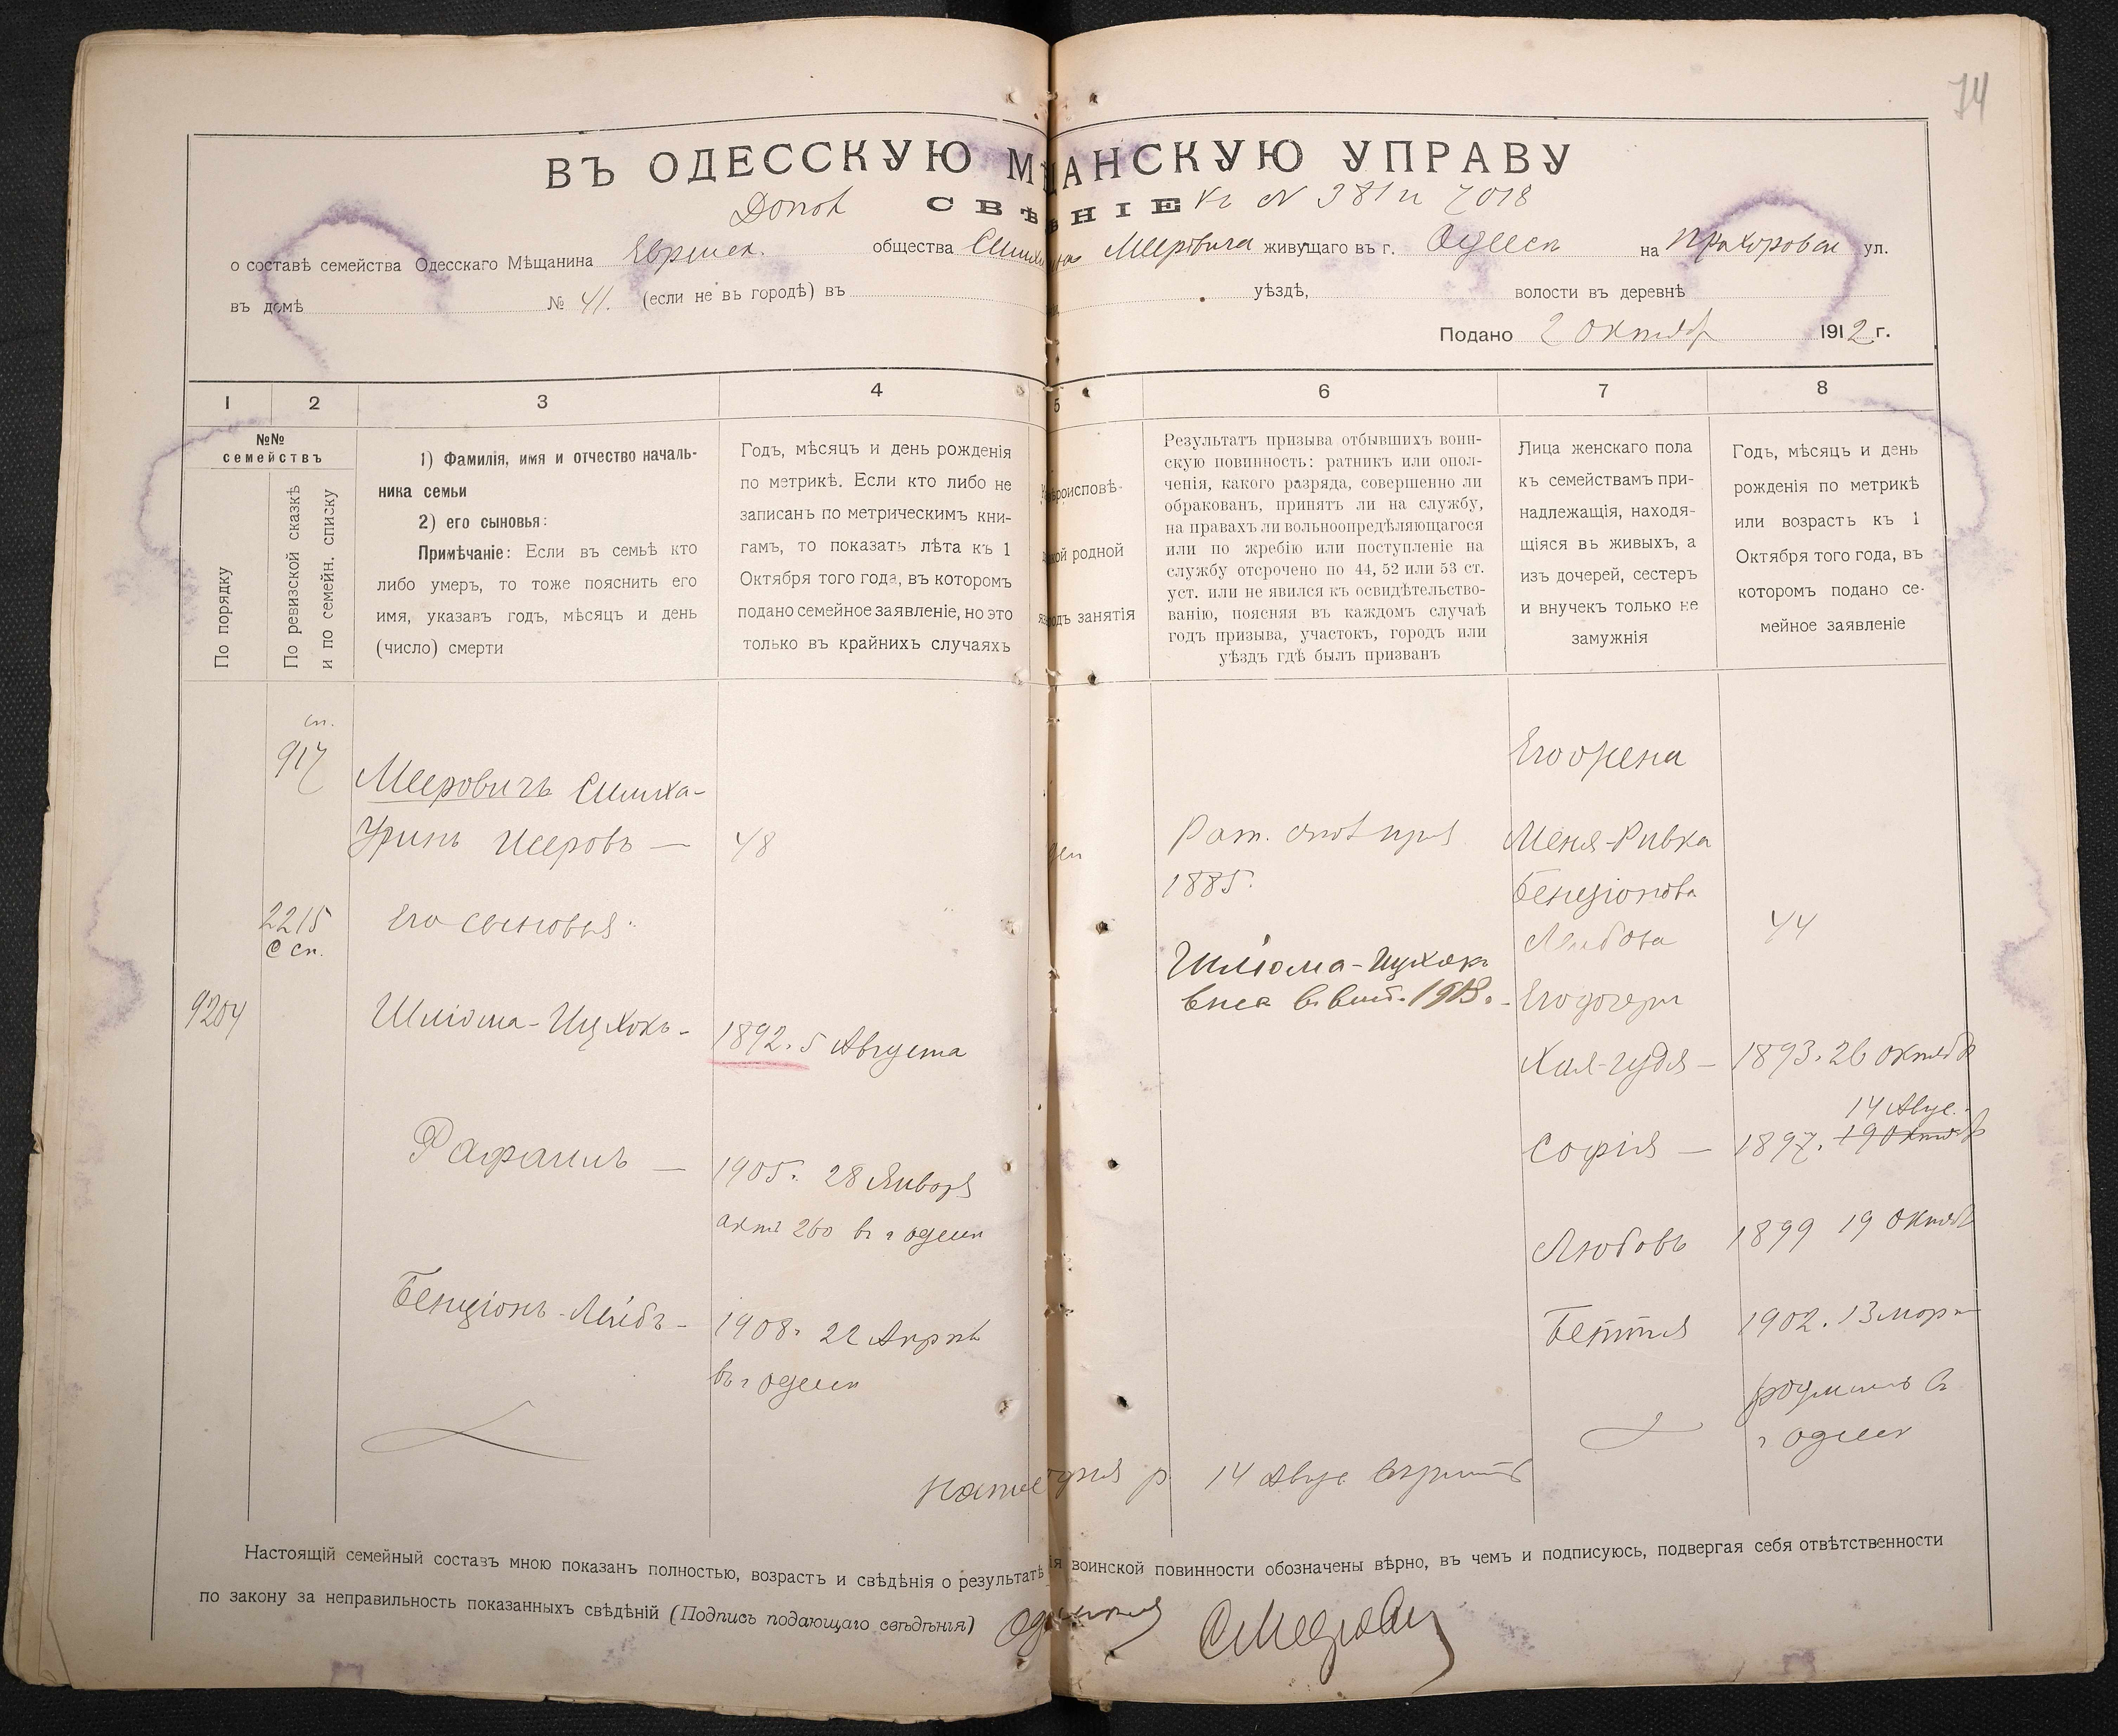 74
ВЪ ОДЕССКУЮ М ЩАНСКУЮ УПРАВУ
СВѢ НІЕ къ № 381 и 7018
о составѣ семейства Одесскаго Мѣщанина Еврейск. общества Симх Мееровича живущаго въ г. Одесса на Прохоровск ул.
въ домѣ № 41. (если не въ городѣ) въ уѣздѣ, волости въ деревнѣ
Подано 2 октябр 1912 г.
1 2 3 4 5 6 7 8
№№
семействъ
По порядку
По ревизской сказкѣ
и по семейн. списку
1) Фамилія, имя и отчество началь-
ника семьи
2) его сыновья:
Примѣчаніе: Если въ семьѣ кто
либо умеръ, то тоже пояснить его
имя, указавъ годъ, мѣсяцъ и день
(число) смерти
Годъ, мѣсяцъ и день рожденія
по метрикѣ. Если кто либо не
записанъ по метрическимъ кни-
гамъ, то показать лѣта къ 1
Октября того года, въ которомъ
подано семейное заявленіе, но это
только въ крайнихъ случаяхъ
ѣроисповѣ-
кой родной
одъ занятія
Результатъ призыва отбывшихъ воин-
скую повинность: ратникъ или опол-
ченія, какого разряда, совершенно ли
обракованъ, принятъ ли на службу,
на правахъ ли вольноопредѣляющагося
или по жребію или поступленіе на
службу отсрочено по 44, 52 или 53 ст.
уст. или не явился къ освидѣтельство-
ванію, поясняя въ каждомъ случаѣ
годъ призыва, участокъ, городъ или
уѣздъ гдѣ былъ призванъ
Лица женскаго пола
къ семействамъ при-
надлежащія, находя-
щіяся въ живыхъ, а
изъ дочерей, сестеръ
и внучекъ только не
замужнія
Годъ, мѣсяцъ и день
рожденія по метрикѣ
или возрастъ къ 1
Октября того года, въ
которомъ подано се-
мейное заявленіе
сп.
917
Мееровичъ Симха-
Уринъ Исеровъ — 48
2215
с сп.
Его сыновья:
9204
Шліома-Ицхокъ- 1892. 5 Августа
Рафаилъ — 1905. 28 Января
актъ 260 въ г Одесси
Бенціонъ-Лейбъ- 1908. 22 Апрѣл
въ г Одесси
Рат. опол
1885.
Шліома-Ицхокъ
Его жена
Меня-Ривка
Бенціонова
Лейбова 44
Его дочери
Хая-Гудя — 1893. 26 октябр
Софія — 1897. 19 Октябр
14 Авгус.
Любовь 1899 19 Октяб
Беття 1902. 13 мар
родились въ
г Одесси
14 Авгус
Настоящій семейный составъ мною показанъ полностью, возрастъ и свѣдѣнія о результатѣ ія воинской повинности обозначены вѣрно, въ чемъ и подписуюсь, подвергая себя отвѣтственности
по закону за неправильность показанныхъ свѣдѣній (Подпись подающаго свѣдѣнія) СМеерович